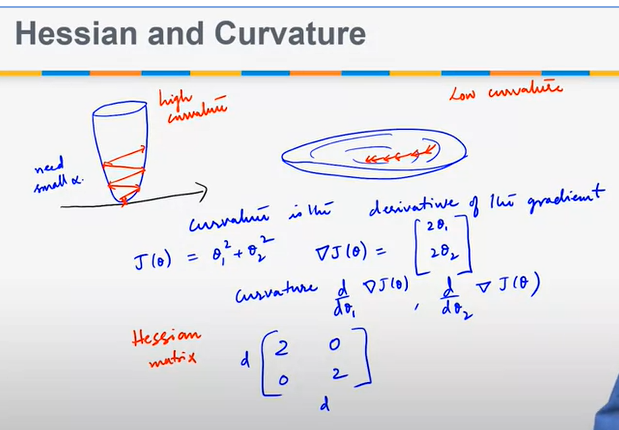 Hessian and Curvature
high curvature
Low curvature
need small α.
curvature is the derivative of the gradient
J(θ) = θ₁² + θ₂² ∇J(θ) = [2θ₁ 2θ₂]
curvature d/dθ₁ ∇J(θ), d/dθ₂ ∇J(θ)
Hessian matrix
d [2 0
0 2]
d